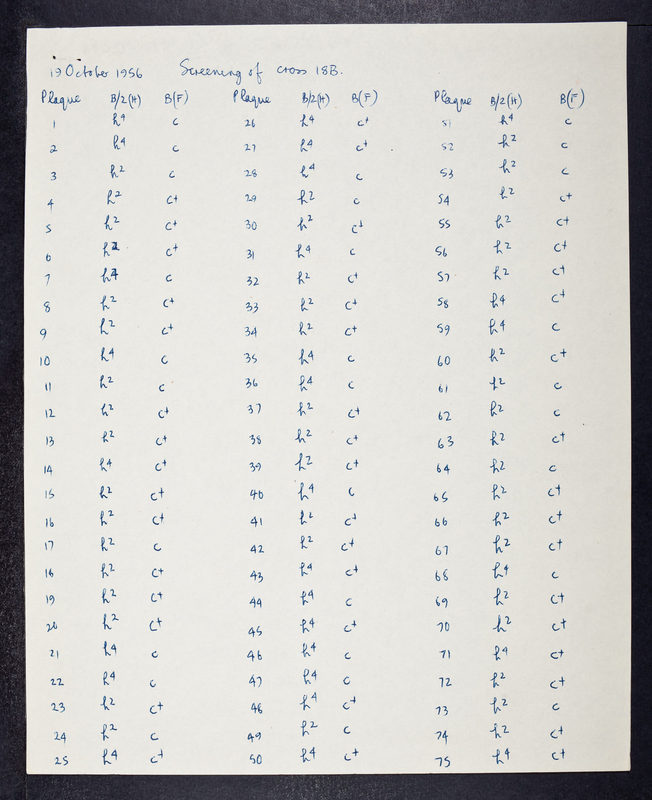 19 October 1956 Screening of cross 18B.
Plaque B/2(H) B(F) Plaque B/2(H) B(F) Plaque B/2(H) B(F)
1 h4 c 26 h4 c+ 51 h4 c
2 h4 c 27 h4 c+ 52 h2 c
3 h2 c 28 h4 c 53 h2 c
4 h2 c+ 29 h2 c 54 h2 c+
5 h2 c+ 30 h2 c+ 55 h2 c+
6 h2 c+ 31 h4 c 56 h2 c+
7 h4 c 32 h2 c+ 57 h2 c+
8 h2 c+ 33 h2 c+ 58 h4 c+
9 h2 c+ 34 h2 c+ 59 h4 c
10 h4 c 35 h4 c 60 h2 c+
11 h2 c 36 h4 c 61 h2 c
12 h2 c+ 37 h2 c+ 62 h2 c
13 h2 c+ 38 h2 c+ 63 h2 c+
14 h4 c+ 39 h2 c+ 64 h2 c
15 h2 c+ 40 h4 c 65 h2 c+
16 h2 c+ 41 h2 c+ 66 h2 c+
17 h2 c 42 h2 c+ 67 h2 c+
18 h2 c+ 43 h4 c+ 68 h4 c
19 h2 c+ 44 h4 c 69 h2 c+
20 h2 c+ 45 h4 c+ 70 h2 c+
21 h4 c 46 h4 c 71 h4 c+
22 h4 c 47 h4 c 72 h2 c+
23 h2 c+ 48 h4 c+ 73 h2 c
24 h2 c 49 h2 c 74 h2 c+
25 h4 c+ 50 h4 c+ 75 h4 c+